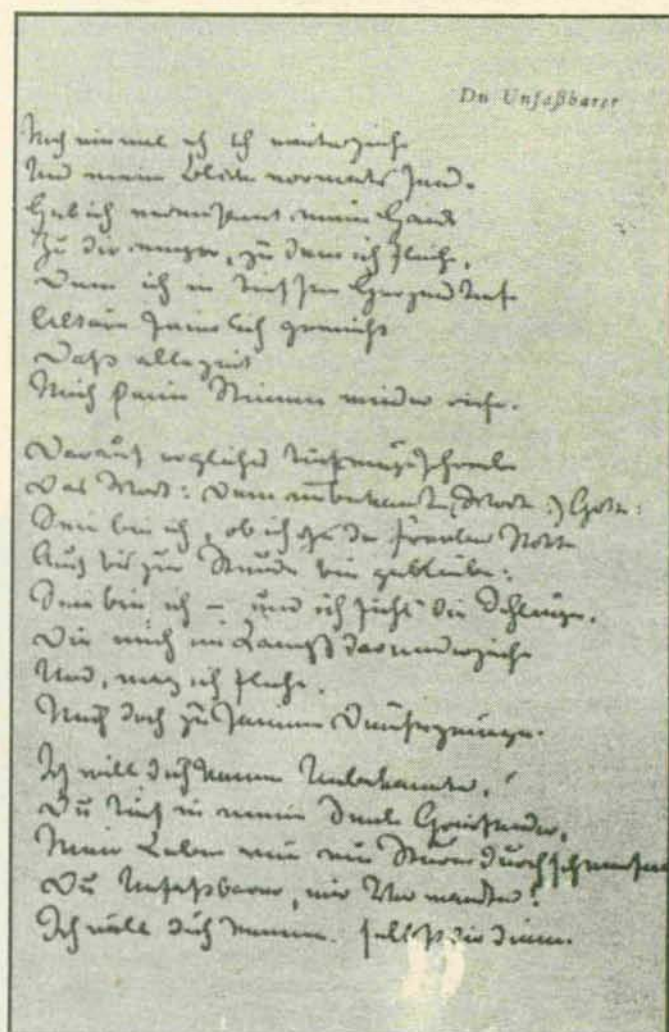 Du Unfaßbarer
Noch einmal eh ich weiterziehe
Und meine Blicke vorwärts sende
Heb ich vereinsamt meine Hände
Zu dir empor, zu dem ich fliehe,
Dem ich in tiefster Herzenstiefe
Altäre feierlich geweiht
Daß allezeit
Mich seine Stimme wieder riefe.
Darauf erglühet tiefeingeschrieben
Das Wort: Dem unbekannten Gotte:
Sein bin ich, ob ich in der Frevler Rotte
Auch bis zur Stunde bin geblieben:
Sein bin ich – und ich fühl' die Schlingen,
Die mich im Kampf darniederziehn
Und, mag ich fliehn,
Mich doch zu seinem Dienste zwingen.
Ich will dich kennen Unbekannter,
Du tief in meine Seele Greifender,
Mein Leben wie ein Sturm durchschweifender
Du Unfaßbarer, mir Verwandter!
Ich will dich kennen, selbst dir dienen.